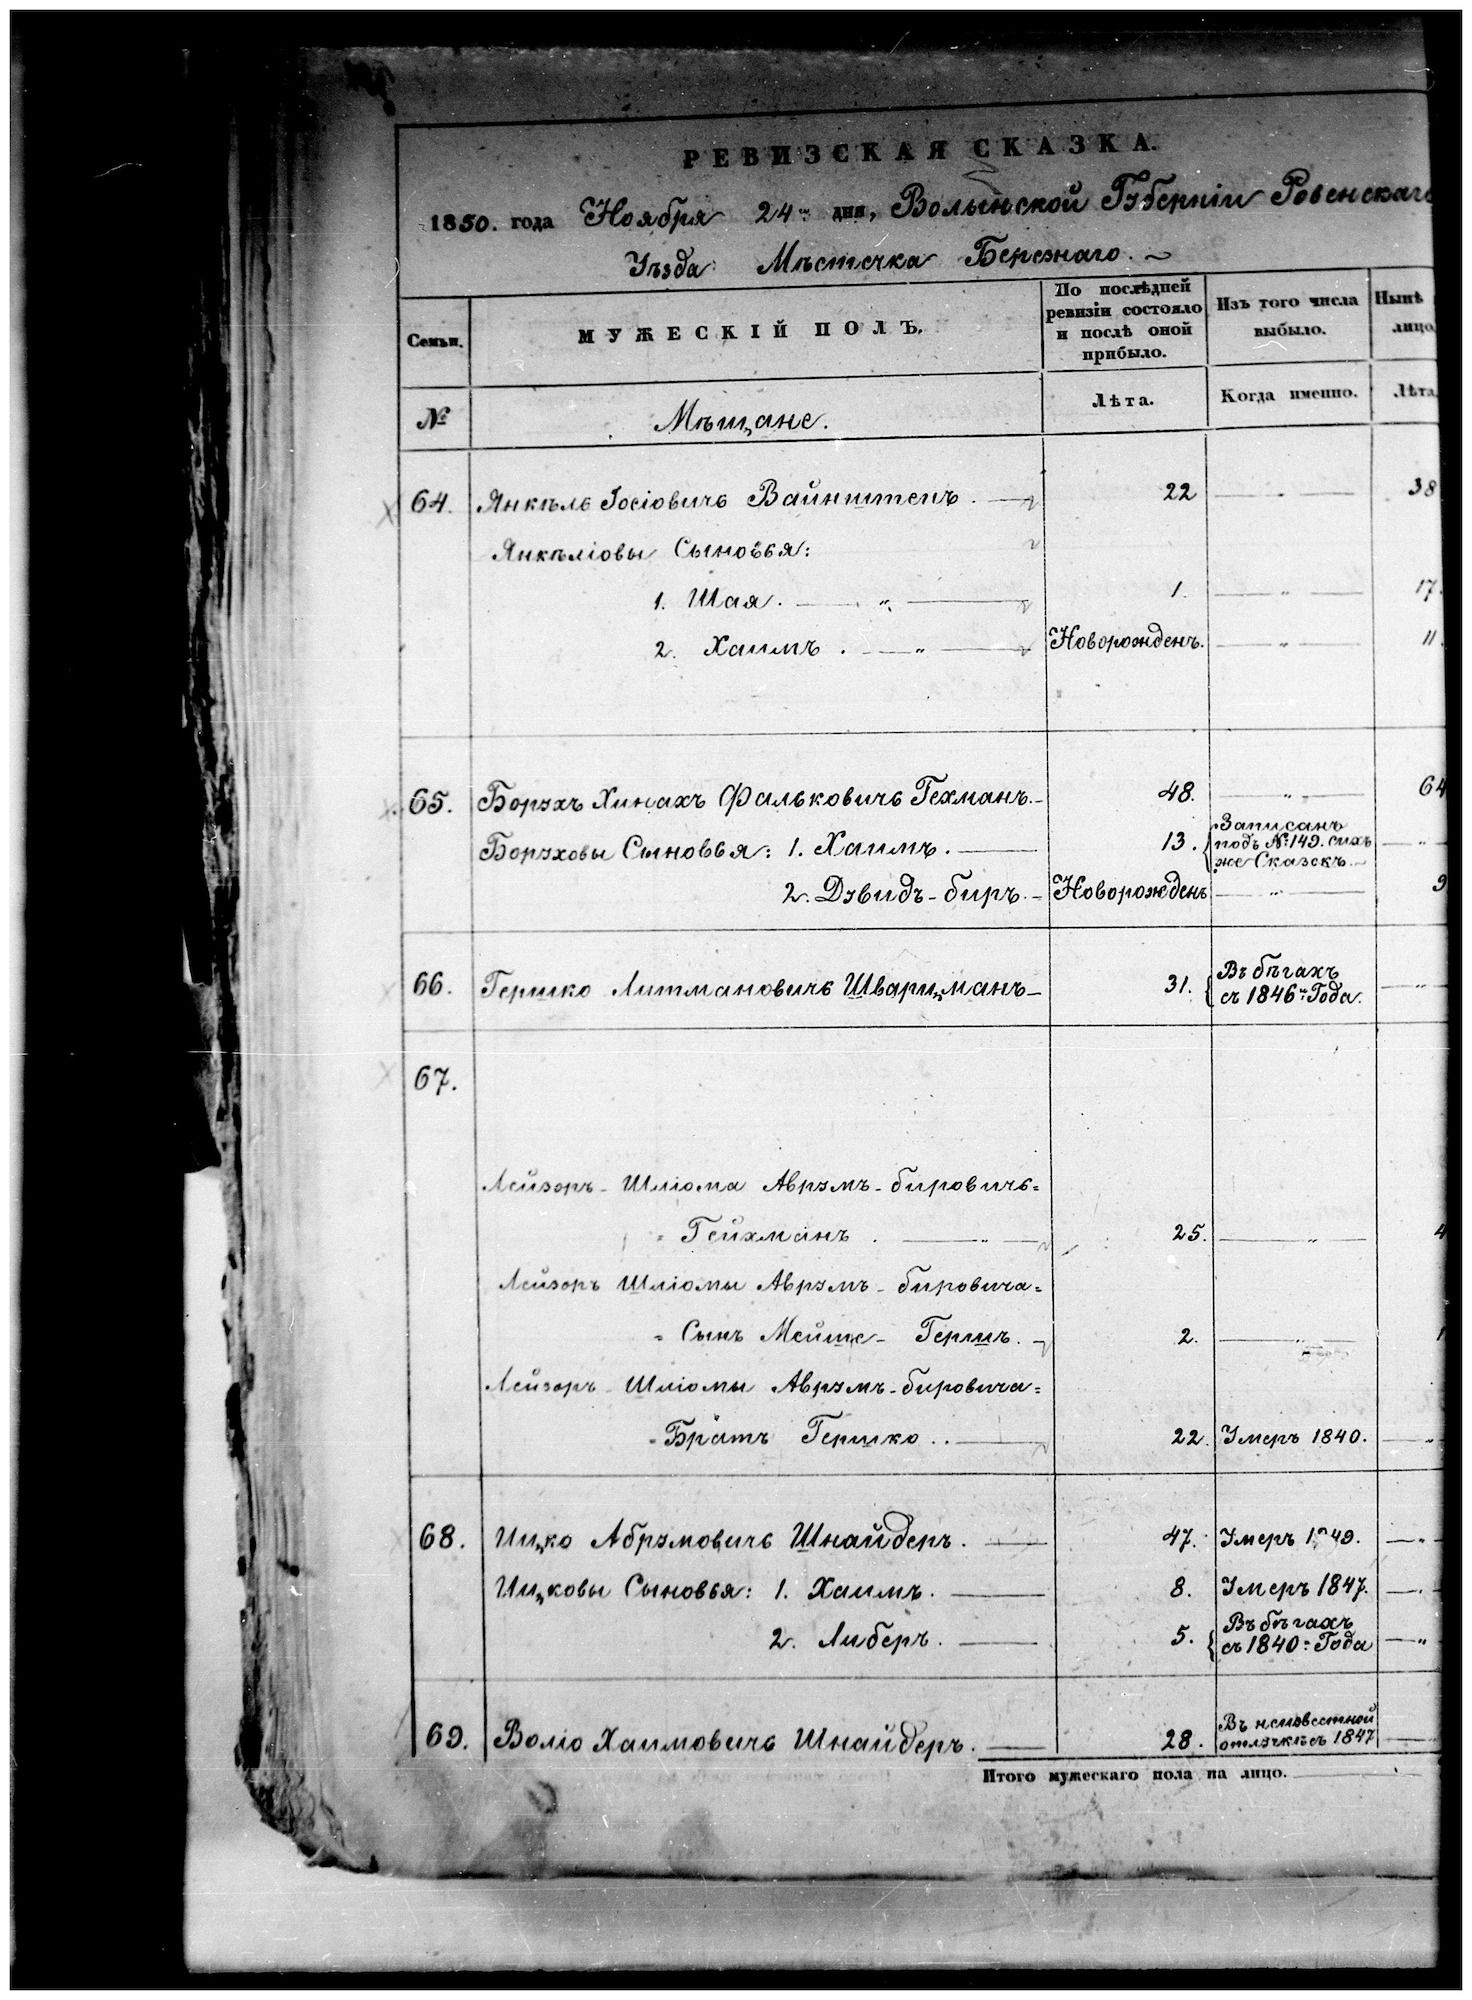 РЕВИЗСКАЯ СКАЗКА.
1850. года Ноября 24го дня, Волынской Губерніи Ровенскаго
Уѣзда Мѣстечка Березнаго.
Семьи.
МУЖЕСКІЙ ПОЛЪ.
По послѣдней
ревизіи состояло
и послѣ оной
прибыло.
Изъ того числа
выбыло.
Нынѣ
лицо
№
Мѣщане.
Лѣта.
Когда именно.
Лѣта
64. Янкель Іосіовичь Вайнштенъ . — 22 — " — 38
Янкеліовы Сыновья:
1. Шая. — " — 1. — " — 17.
2. Хаимъ . — " — Новорожденъ. — " — 11.
65. Борухъ Хинахъ Фальковичь Гехманъ. — 48. — " — 64
Боруховы Сыновья: 1. Хаимъ. — 13. Записанъ
подъ №: 149. сихъ
же Сказокъ. — " —
2. Дувидъ-биръ. — Новорожденъ — " — 9
66. Гершко Литмановичь Шварцманъ — 31. Въ бѣгахъ
съ 1846го Года. — " —
67.
Лейзоръ-Шліома Аврумъ-бировичь=
= Гейхманъ . — " — 25. — " — 4
Лейзоръ Шліомы Аврумъ-бировича=
= Сынъ Мейше-Гершъ. — 2. — " — 1
Лейзоръ-Шліомы Аврумъ-бировича=
-Братъ Гершко . . — 22. Умеръ 1840. — " —
68. Ицко Абрумовичь Шнайдеръ. — 47. Умеръ 1849. — " —
Ицковы Сыновья: 1. Хаимъ. — 8. Умеръ 1847. — " —
2. Либеръ. — 5. Въ бѣгахъ
съ 1840го Года — " —
69. Воліо Хаимовичь Шнайдеръ. — 28. Въ неизвестной
отлучкѣ съ 1847 —
Итого мужескаго пола на лицо. —